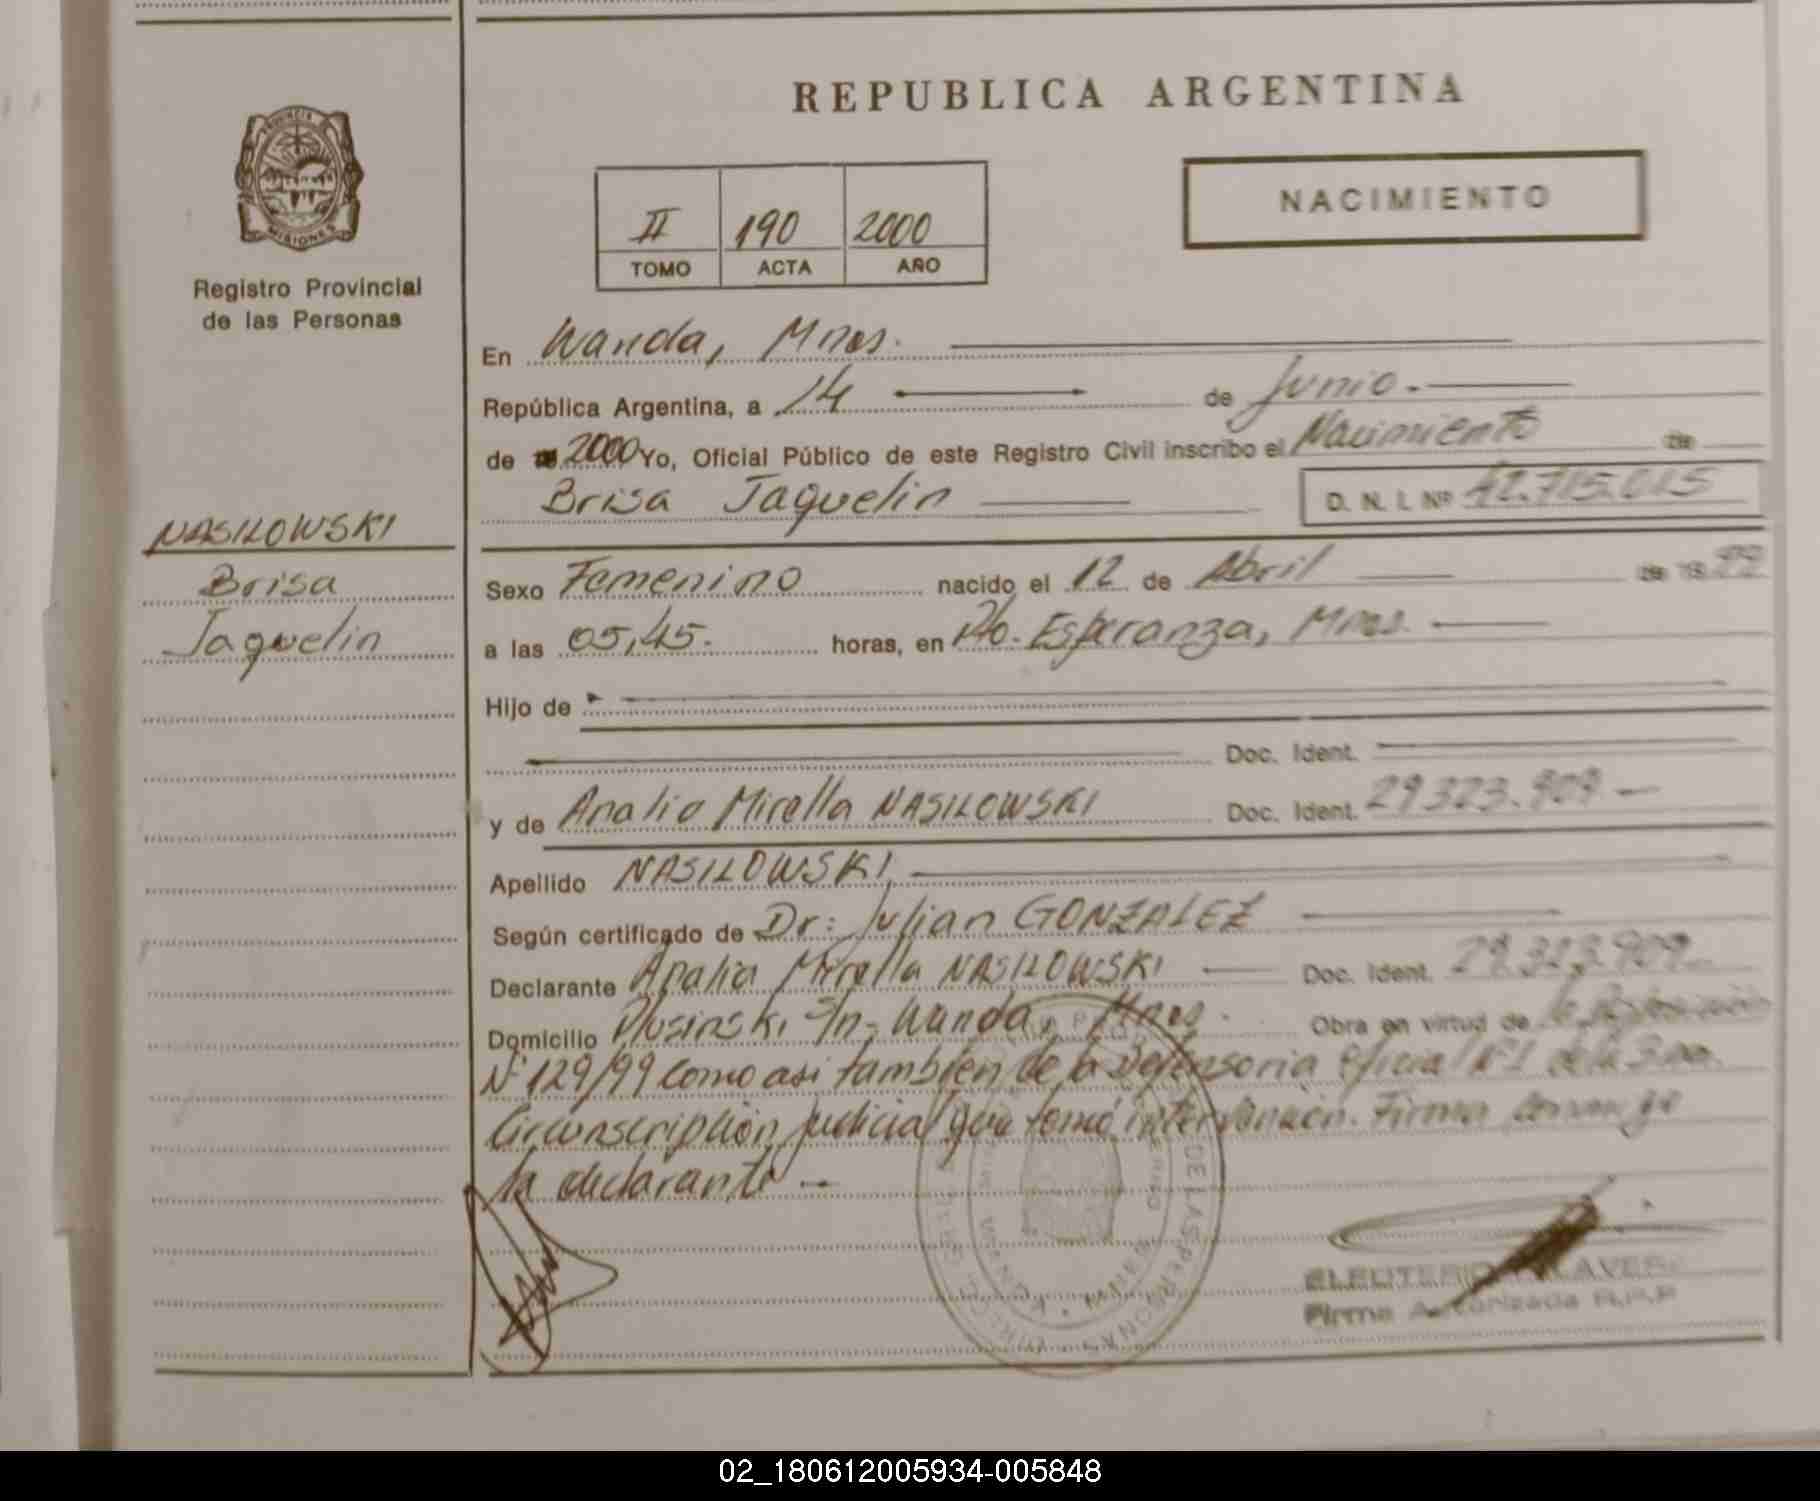 REPUBLICA ARGENTINA
PROVINCIA
MISIONES
Registro Provincial
de las Personas
NACIMIENTO
II 190 2000
TOMO ACTA AÑO
En Wanda, Mnes.
República Argentina, a 14 de Junio.
de 2000 Yo, Oficial Público de este Registro Civil inscribo el Nacimiento de
Brisa Jaquelin D. N. I. Nº 42.715.015
NASILOWSKI
Brisa
Jaquelin
Sexo Femenino nacido el 12 de Abril de 19 99
a las 05,45. horas, en Pto. Esperanza, Mnes.
Hijo de
Doc. Ident.
y de Analia Mirella NASILOWSKI Doc. Ident. 29323.909.-
Apellido NASILOWSKI
Según certificado de Dr: Julian GONZALEZ
Declarante Analia Mirella NASILOWSKI Doc. Ident. 29.323.909
Domicilio S/n- Wanda, Mnes. Obra en virtud de la
Nº 129/99 como asi tambien de la Defensoria Oficial Nº1 de la 3ra.
Circunscripción Judicial que tomó intervención. Firma
la declarante -
DE LAS PERSONAS
WANDA
ELEUTERIO
Firma Autorizada R.P.P
02_180612005934-005848